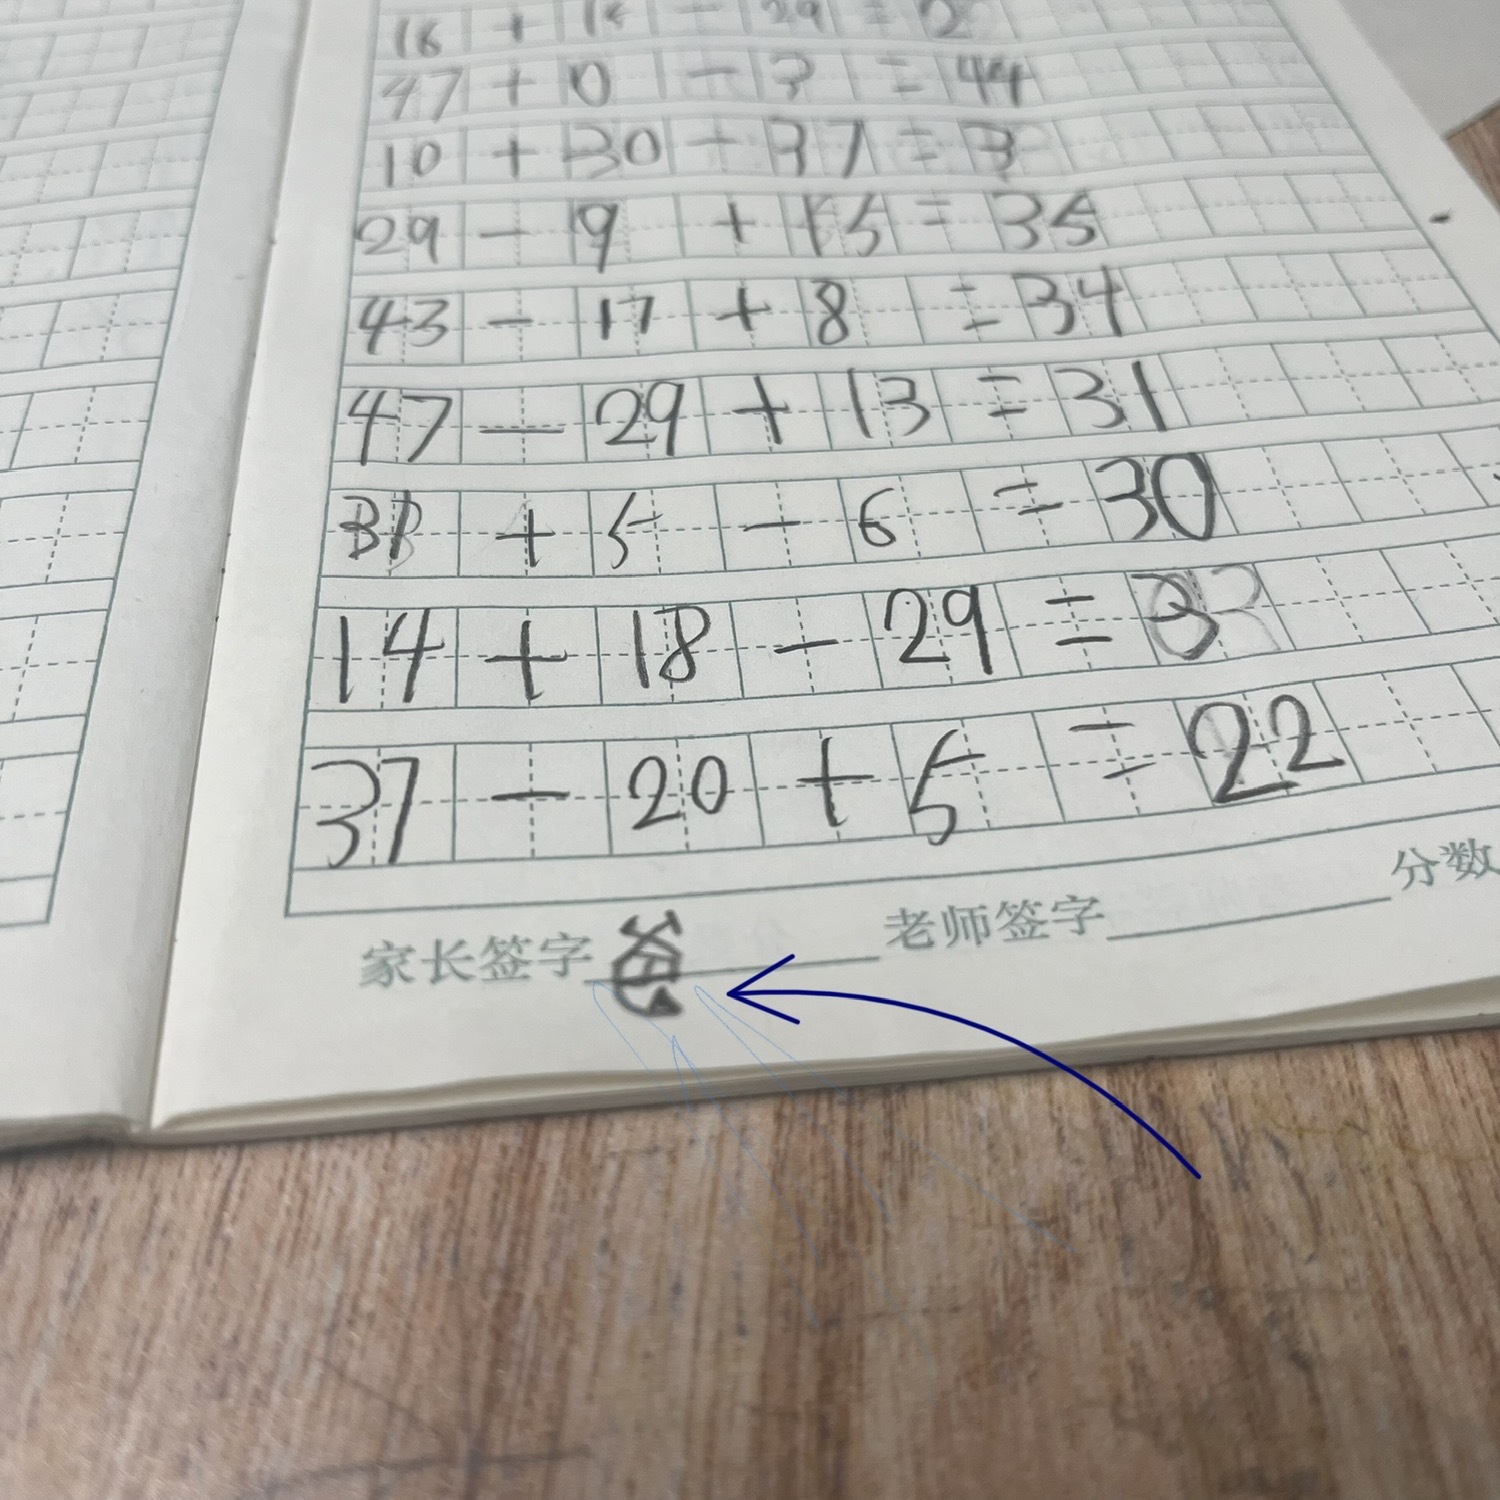 47 + 0 - 3 = 44
10 + 30 - 37 = 3
29 - 9 + 15 = 35
43 - 17 + 8 = 34
47 - 29 + 13 = 31
31 + 5 - 6 = 30
14 + 18 - 29 = 3
37 - 20 + 5 = 22
家长签字 老师签字 分数